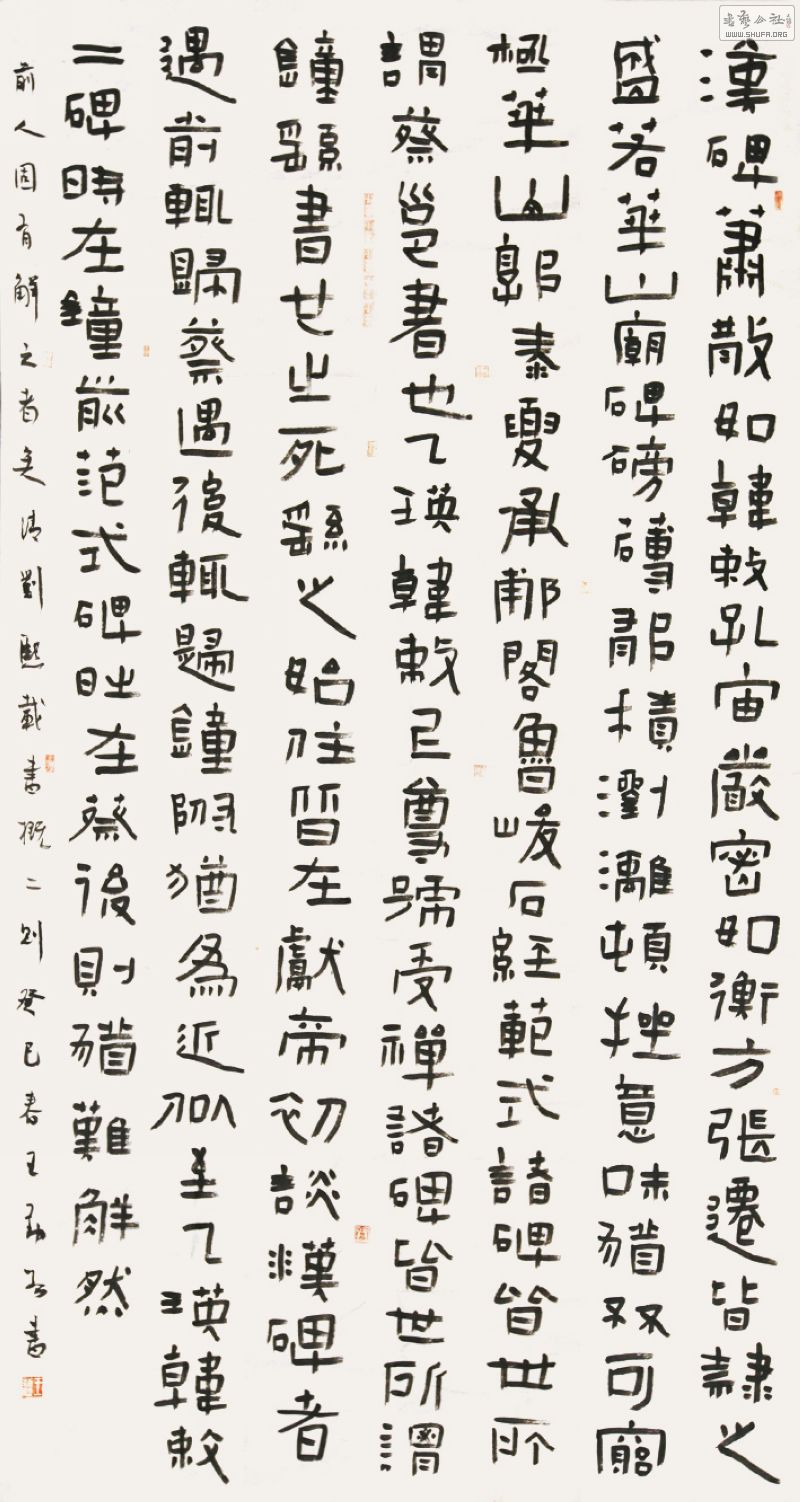 漢碑蕭散如韓敕孔宙嚴密如衡方張遷皆隸之
盛若華山廟碑磅礴鬱積瀏漓頓挫意味猶不可窮
極華山郭泰夏承郙閣魯峻石經範式諸碑皆世所
謂蔡邕書也乙瑛韓敕上尊號受禪諸碑皆世所謂
鐘繇書也之死繇之始仕皆在獻帝初談漢碑者
遇前輒歸蔡遇後輒歸鐘附猶為近似至乙瑛韓敕
二碑時在鐘前范式碑時在蔡後則猶難解然
前人固有解之者矣清劉熙載書概二則癸巳春王書
書藝公社
WWW.SHUFA.ORG